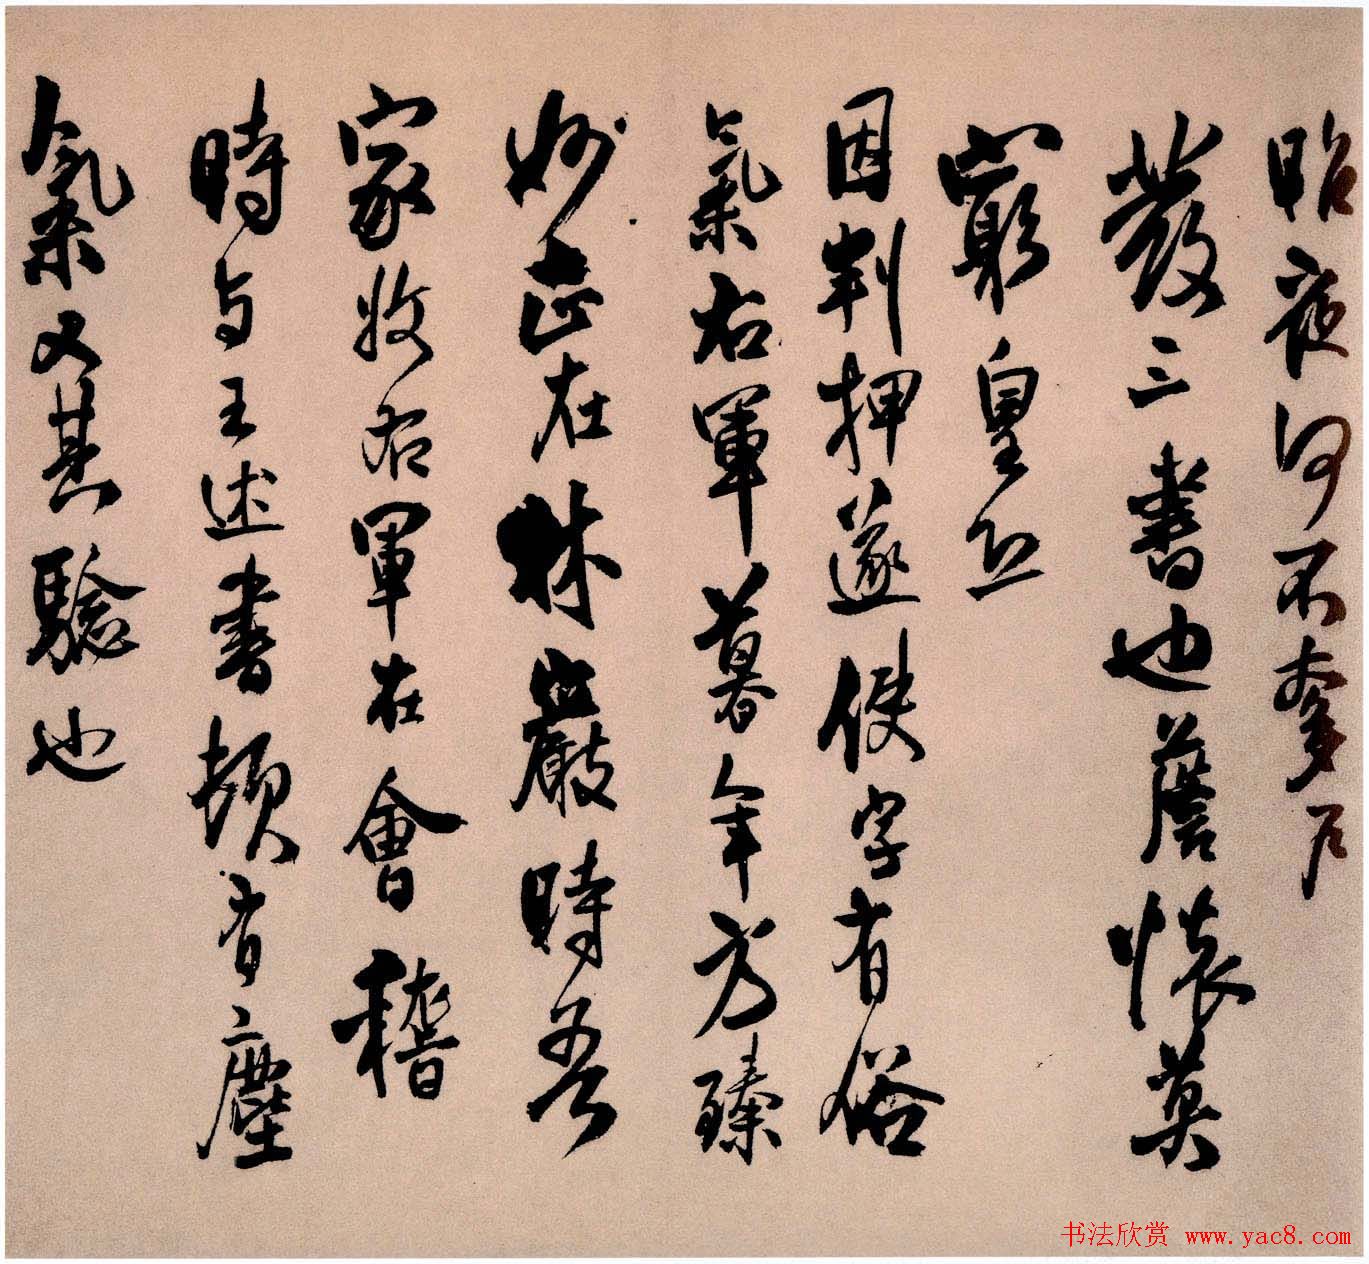 昭夜何不
發三書也薝懷莫
窮皇恐
因判押遂使字有俗
氣右軍暮年方臻
妙正在林巖時吾
家收右軍在會稽
時与王述書頓有塵
氣又其驗也
书法欣赏 www.yac8.com